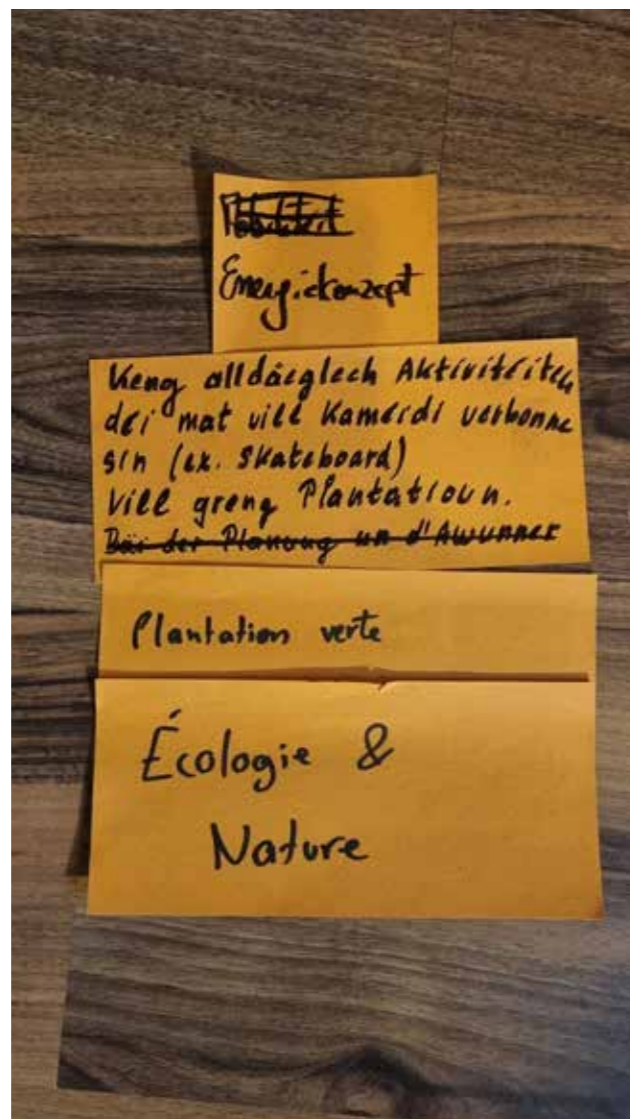 Energiekonzept
Keng alldäeglech Aktivitéiten
déi mat vill Kaméidi verbonne
sin (ex. Skateboard)
Vill greng Plantatioun.
Bäi der Planung un d'Awunner
Plantation verte
Écologie &
Nature